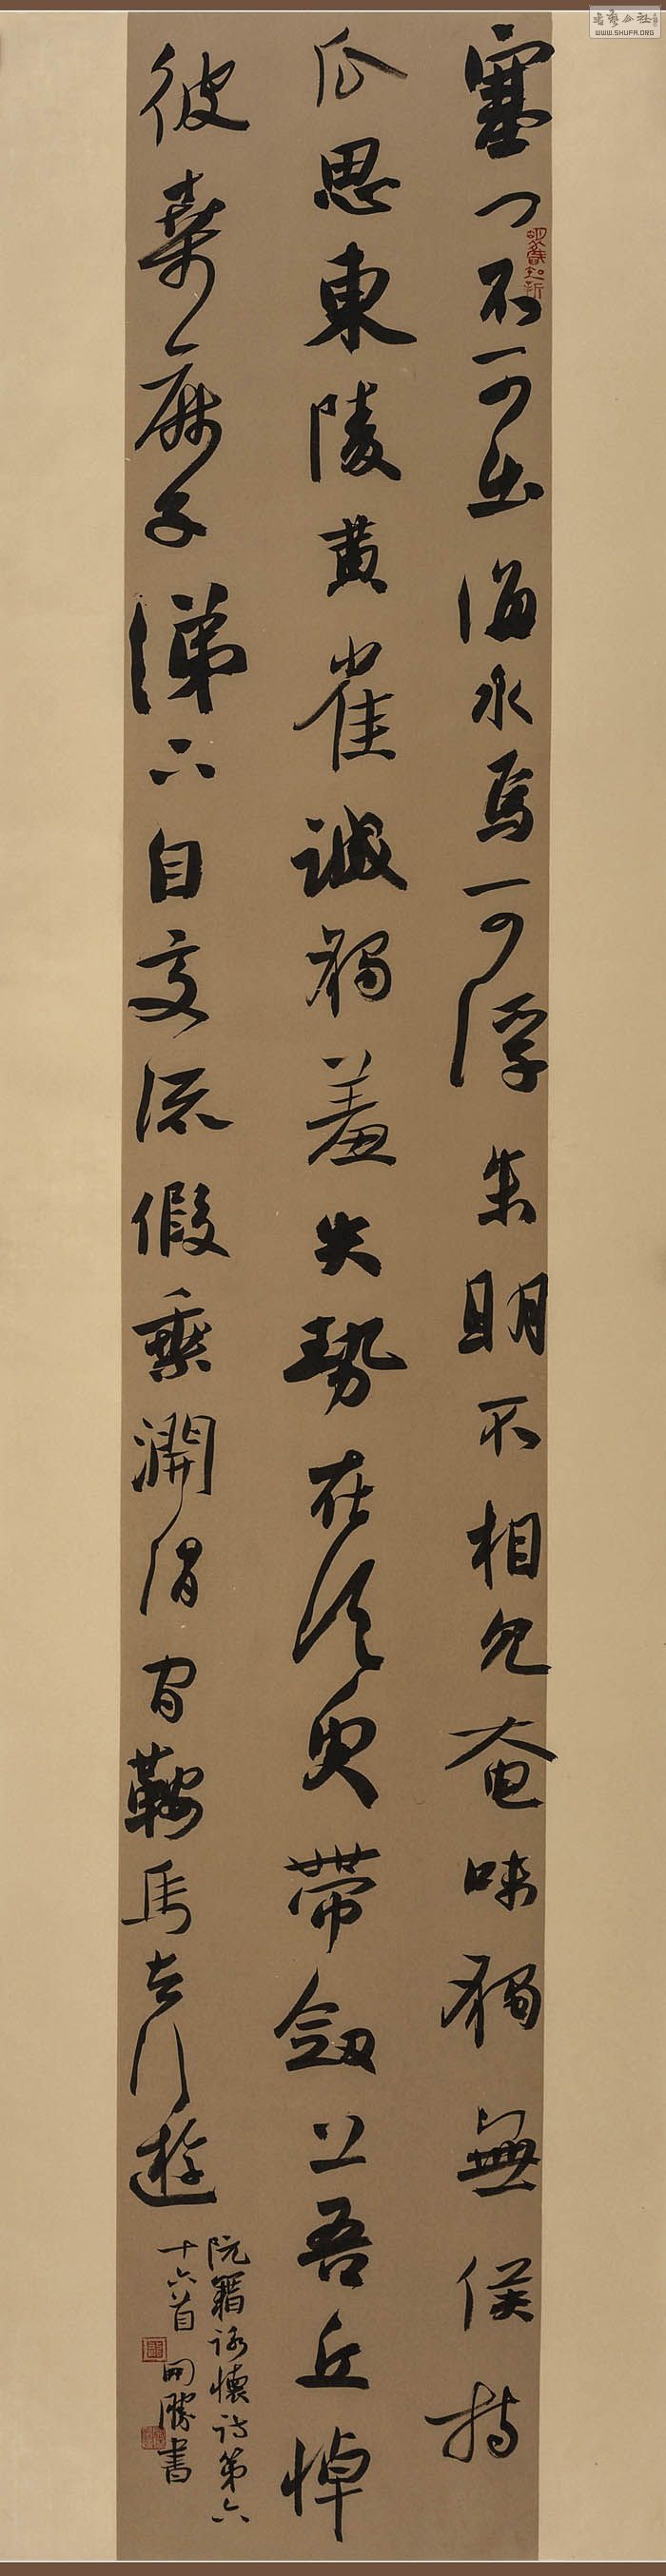 塞門不可出海水焉可浮朱明不相見奄昧獨無侯持
瓜思東陵黃雀誠獨羞失勢在須臾帶劍上吾丘悼
彼桑麻子涕下自交流假乘澗渭間鞍馬去行遊
阮籍詠懷詩第六
十六首 開勝書
書藝公社
WWW.SHUFA.ORG